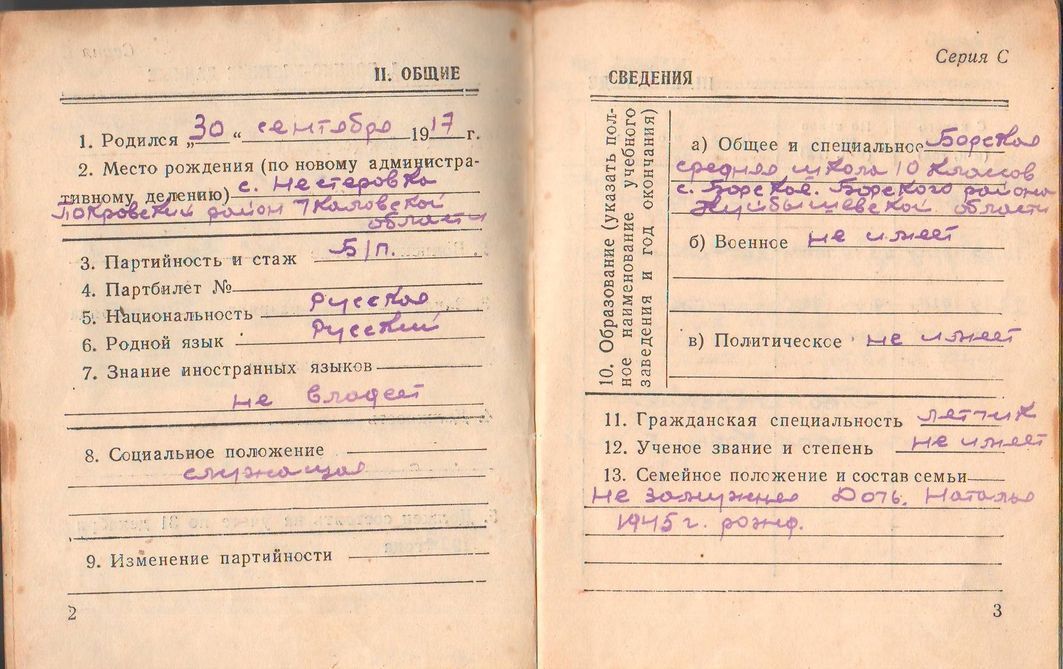 II. ОБЩИЕ
1. Родился „30“ сентября 1917 г.
2. Место рождения (по новому администра-
тивному делению) с. Нестеровка
Покровский район Чкаловской
области
3. Партийность и стаж Б/п.
4. Партбилет №
5. Национальность русская
6. Родной язык русский
7. Знание иностранных языков
не владеет
8. Социальное положение
служащая
9. Изменение партийности
2
Серия С
СВЕДЕНИЯ
10. Образование (указать пол-
ное наименование учебного
заведения и год окончания)
а) Общее и специальное Борская
средняя школа 10 классов
с. Борское. Борского района
Куйбышевской области
б) Военное не имеет
в) Политическое не имеет
11. Гражданская специальность летчик
12. Ученое звание и степень не имеет
13. Семейное положение и состав семьи
Не замужняя Дочь. Наталья
1945 г. рожд.
3